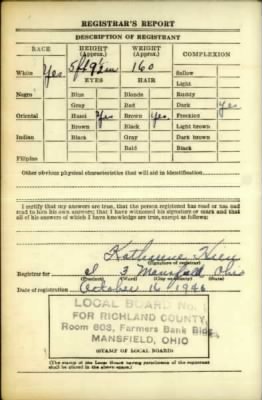 REGISTRAR'S REPORT
DESCRIPTION OF REGISTRANT
RACE HEIGHT (Approx.) WEIGHT (Approx.) COMPLEXION
White Yes 5 ft 9½ in 160 Sallow
EYES HAIR Light
Negro Blue Blonde Ruddy
Gray Red Dark Yes
Oriental Hazel Yes Brown Yes Freckled
Brown Black Light brown
Indian Black Gray Dark brown
Bald Black
Filipino
Other obvious physical characteristics that will aid in identification
I certify that my answers are true; that the person registered has read or has had
read to him his own answers; that I have witnessed his signature or mark and that
all of his answers of which I have knowledge are true, except as follows:
Katherine
(Signature of registrar)
Registrar for 3 Mansfield Ohio
(Precinct) (Ward) (City or County) (State)
Date of registration October 16 1940
LOCAL BOARD No.
FOR RICHLAND COUNTY
Room 603, Farmers Bank Bldg.
MANSFIELD, OHIO
(STAMP OF LOCAL BOARD)
(The stamp of the Local Board having jurisdiction of the registrant
shall be placed in the above space.)